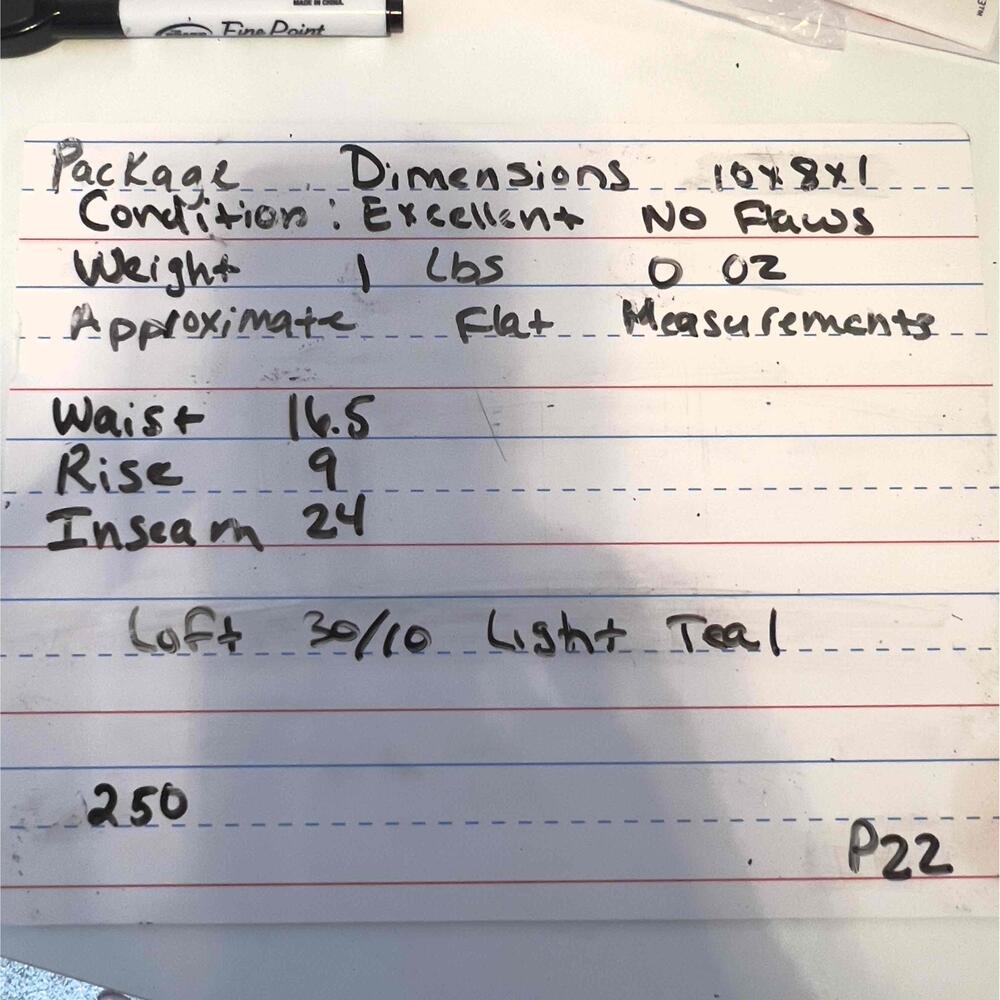 MADE IN CHINA.
Fine Point
Package Dimensions 10x8x1
Condition: Excellent No Flaws
Weight 1 Lbs 0 oz
Approximate Flat Measurements
Waist 16.5
Rise 9
Inseam 24
Loft 30/10 Light Teal
250
P22